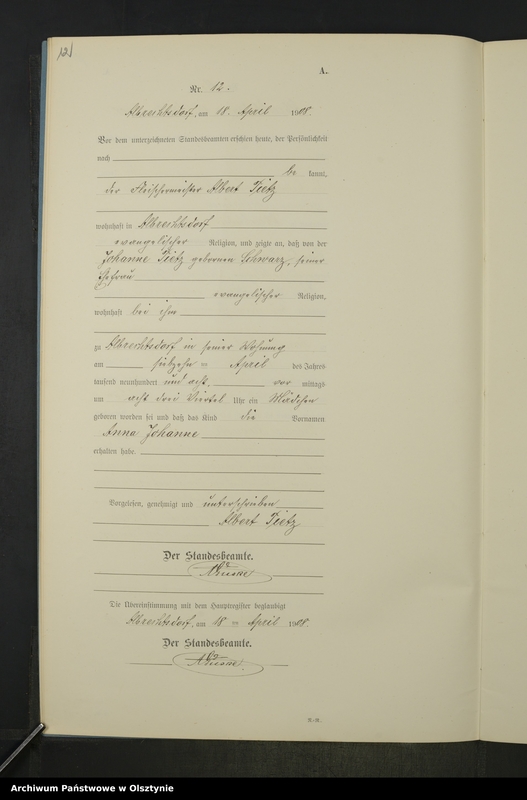 12
A.
Nr. 12.
Albrechtsdorf, am 18. April 1908.
Vor dem unterzeichneten Standesbeamten erschien heute, der Persönlichkeit
nach be kannt,
der Fleischermeister Albert Tietz
wohnhaft in Albrechtsdorf
evangelischer Religion, und zeigte an, daß von der
Johanne Tietz geborenen Schwarz, seiner
Ehefrau
evangelischer Religion,
wohnhaft bei ihm
zu Albrechtsdorf in seiner Wohnung
am siebzehn = April des Jahres
tausend neunhundert und acht vor mittags
um acht drei Viertel Uhr ein Mädchen
geboren worden sei und daß das Kind die Vornamen
Anna Johanne
erhalten habe.
Vorgelesen, genehmigt und unterschrieben
Albert Tietz
Der Standesbeamte.
Die Übereinstimmung mit dem Hauptregister beglaubigt
Albrechtsdorf, am 18 = April 1908.
Der Standesbeamte.
Archiwum Państwowe w Olsztynie